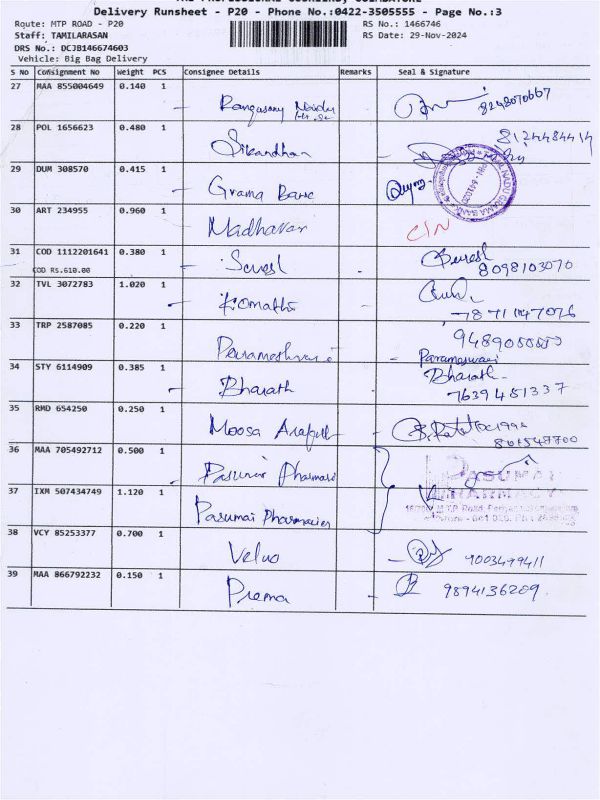 THE PROFESSIONAL COURIERS, COIMBATORE
Delivery Runsheet - P20 - Phone No.:0422-3505555 - Page No.:3
Route: MTP ROAD - P20 RS No.: 1466746
Staff: TAMILARASAN RS Date: 29-Nov-2024
DRS No.: DCJB146674603
Vehicle: Big Bag Delivery
S No Consignment No Weight PCS Consignee Details Remarks Seal & Signature
27 MAA 855004649 0.140 1 Rangasamy Naidu 8248070667
28 POL 1656623 0.480 1 Sikandhan 8124484414
29 DUM 308570 0.415 1 Grama Bank
TAMIL NADU GRAMA BANK
30 ART 234955 0.960 1 Madhavan
31 COD 1112201641 0.380 1 Suresh Suresh
COD RS.610.00 8098103070
32 TVL 3072783 1.020 1 Komathi
33 TRP 2587085 0.220 1 Parameshwari
Parameswari
34 STY 6114909 0.385 1 Bharath Bharath
7639451337
35 RMD 654250 0.250 1 Moosa
36 MAA 705492712 0.500 1 Pasumai Pharmacies
PASUMAI
PHARMACY
37 IXM 507434749 1.120 1 Pasumai Pharmacies
38 VCY 85253377 0.700 1 9003499411
39 MAA 866792232 0.150 1 Prema 9894136209